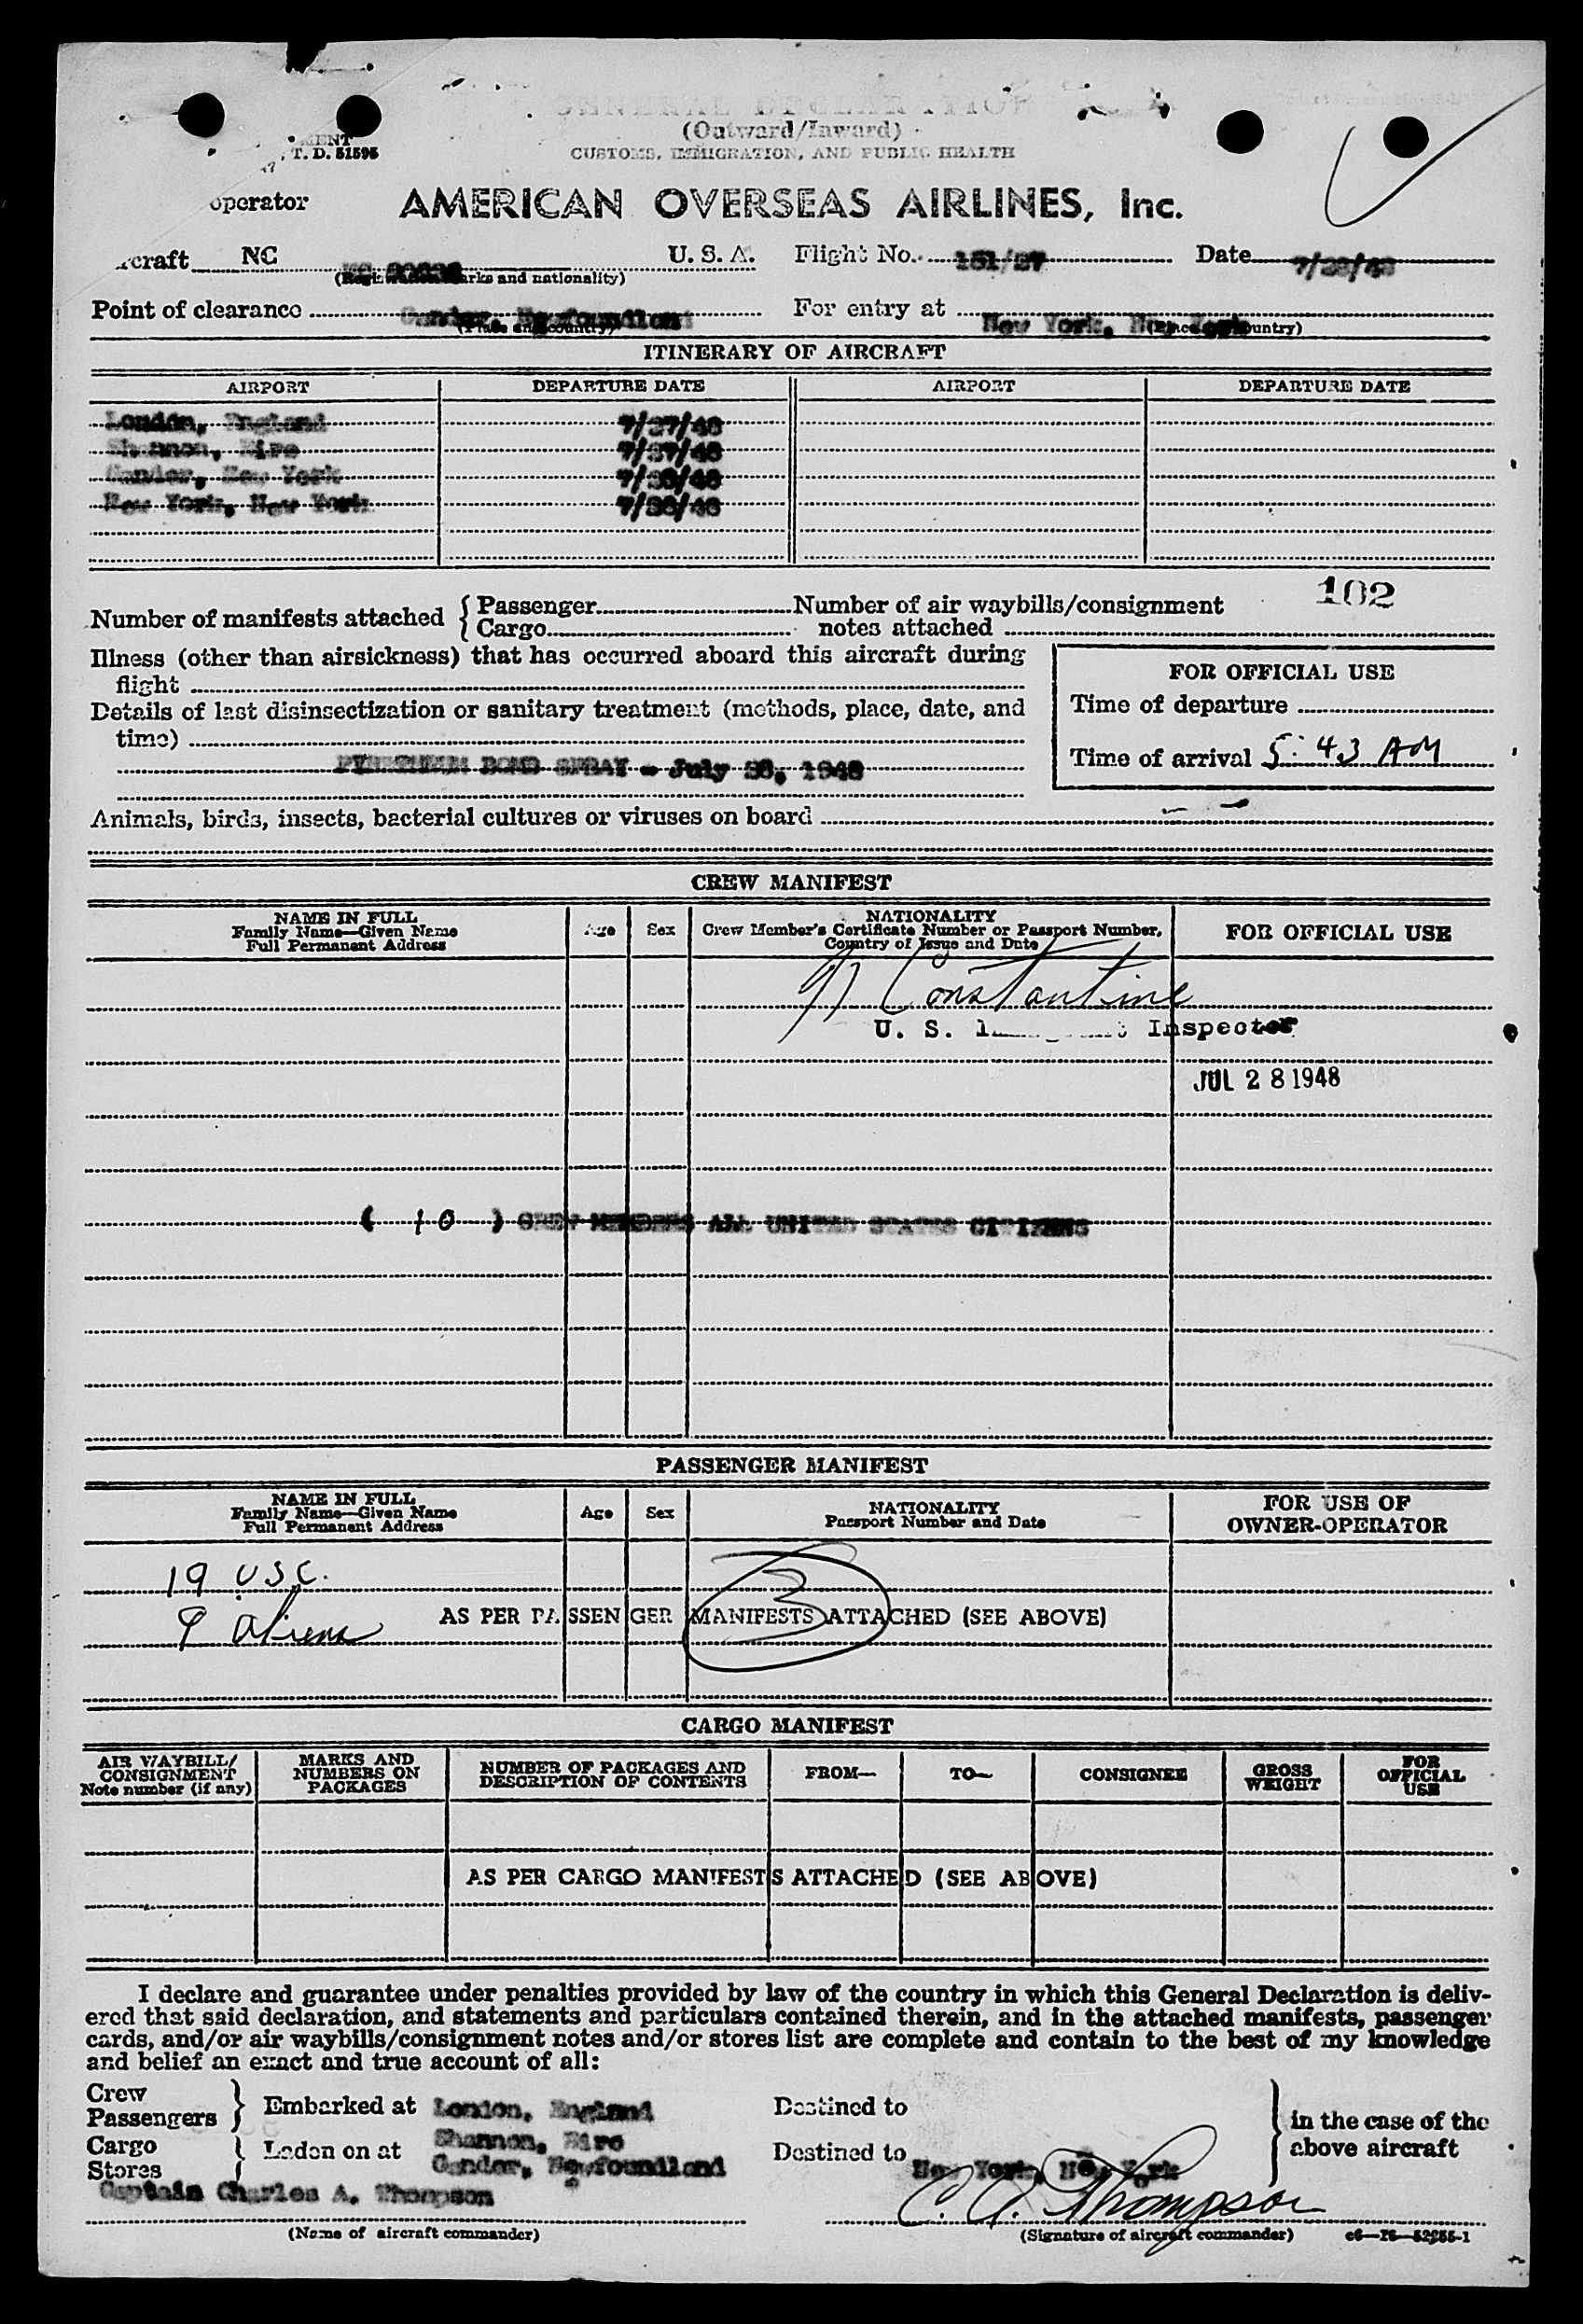 GENERAL DECLARATION
(Outward/Inward)
CUSTOMS, IMMIGRATION, AND PUBLIC HEALTH
T. D. 51595
operator AMERICAN OVERSEAS AIRLINES, Inc.
craft NC U. S. A. Flight No. 151/27 Date 7/28/48
(Registration marks and nationality)
Point of clearance Gander, Newfoundland For entry at New York, New York
(Place and country) (Place and country)
ITINERARY OF AIRCRAFT
AIRPORT DEPARTURE DATE AIRPORT DEPARTURE DATE
London, England 7/27/48
Shannon, Eire 7/27/48
Gander, New York 7/28/48
New York, New York 7/28/48
102
Number of manifests attached { Passenger Number of air waybills/consignment
Cargo notes attached
Illness (other than airsickness) that has occurred aboard this aircraft during
flight
FOR OFFICIAL USE
Details of last disinsectization or sanitary treatment (methods, place, date, and
time)
Time of departure
PYRETHRUM BOMB SPRAY - July 28, 1948
Time of arrival 5:43 AM
Animals, birds, insects, bacterial cultures or viruses on board
CREW MANIFEST
NAME IN FULL
Family Name—Given Name
Full Permanent Address
Age Sex
NATIONALITY
Crew Member's Certificate Number or Passport Number,
Country of Issue and Date
FOR OFFICIAL USE
Constantine
U. S. Inspector
JUL 28 1948
( 10 ) CREW MEMBERS ALL UNITED STATES CITIZENS
PASSENGER MANIFEST
NAME IN FULL
Family Name—Given Name
Full Permanent Address
Age Sex
NATIONALITY
Passport Number and Date
FOR USE OF
OWNER-OPERATOR
19 USC.
9 aliens
3
AS PER PASSENGER MANIFESTS ATTACHED (SEE ABOVE)
CARGO MANIFEST
AIR WAYBILL/
CONSIGNMENT
Note number (if any)
MARKS AND
NUMBERS ON
PACKAGES
NUMBER OF PACKAGES AND
DESCRIPTION OF CONTENTS
FROM— TO— CONSIGNEE
GROSS
WEIGHT
FOR
OFFICIAL
USE
AS PER CARGO MANIFESTS ATTACHED (SEE ABOVE)
I declare and guarantee under penalties provided by law of the country in which this General Declaration is deliv-
ered that said declaration, and statements and particulars contained therein, and in the attached manifests, passenger
cards, and/or air waybills/consignment notes and/or stores list are complete and contain to the best of my knowledge
and belief an exact and true account of all:
Crew
Passengers } Embarked at London, England Destined to
in the case of the
above aircraft
Cargo
Stores } Laden on at Shannon, Eire
Gander, Newfoundland
Destined to New York, New York
Captain Charles A. Thompson C. A. Thompson
(Name of aircraft commander) (Signature of aircraft commander)